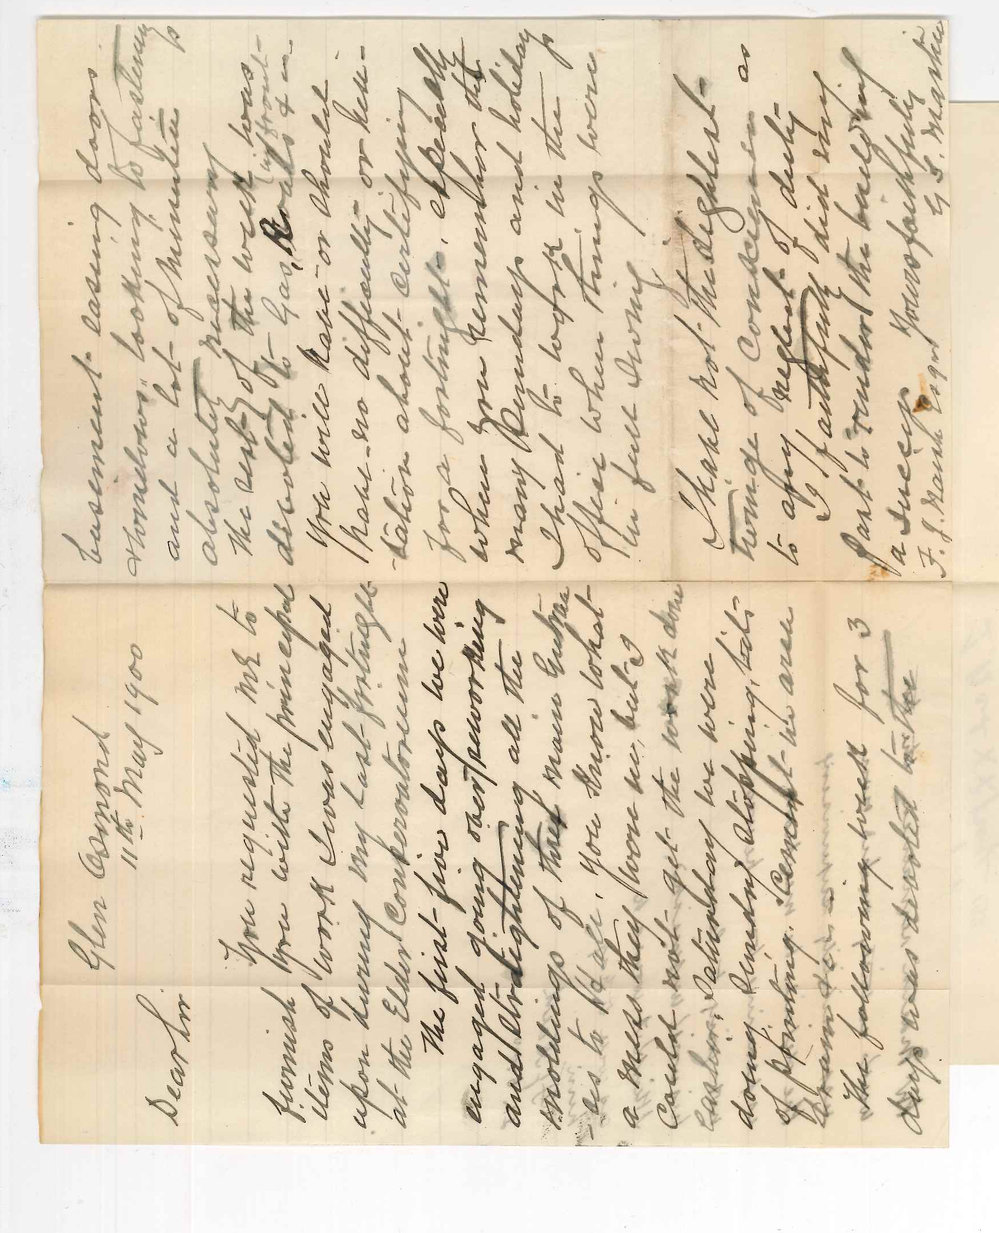 Glen Osmond
11th May 1900
Dear Sir
You requested me to
furnish you with the principal
items of work I was engaged
upon during my last fortnight
at the Elder Conservatorium
The first five days we were
engaged going over reworking
and straightening all the
moldings of three main Entrance
as to Hall, you know what
a mess they were in, but I
could not get the work done
earlier, Saturday we were
doing sundry stopping, bits
of pointing, Cement in area
The following week for 3
days was devoted to the
basement easing doors
& windows, looking to fastenings
and a lot of minutiae
absolutely necessary
the rest of the week was
devoted to Gas, Rooms & in front
You will have or should
have no difficulty or hesi-
tation about certifying
for a fortnight, especially
when you remember the
many Sundays and holidays
I had to work in the
office when things were
in full swing
I have not the slightest
twinge of conscience as
to any neglect of duty
I faithfully did my
part to render the building
a success Yours faithfully
F. J. Naish Esqr G. S. Martin